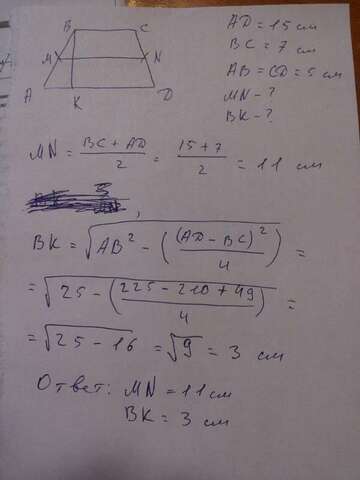 B C
M N
A K D
AD = 15 см
BC = 7 см
AB = CD = 5 см
MN - ?
BK - ?
MN = (BC + AD)/2 = (15 + 7)/2 = 11 см
BK = √(AB² - ((AD - BC)²/4)) =
= √(25 - ((225 - 210 + 49)/4)) =
= √(25 - 16) = √9 = 3 см
Ответ: MN = 11 см
BK = 3 см